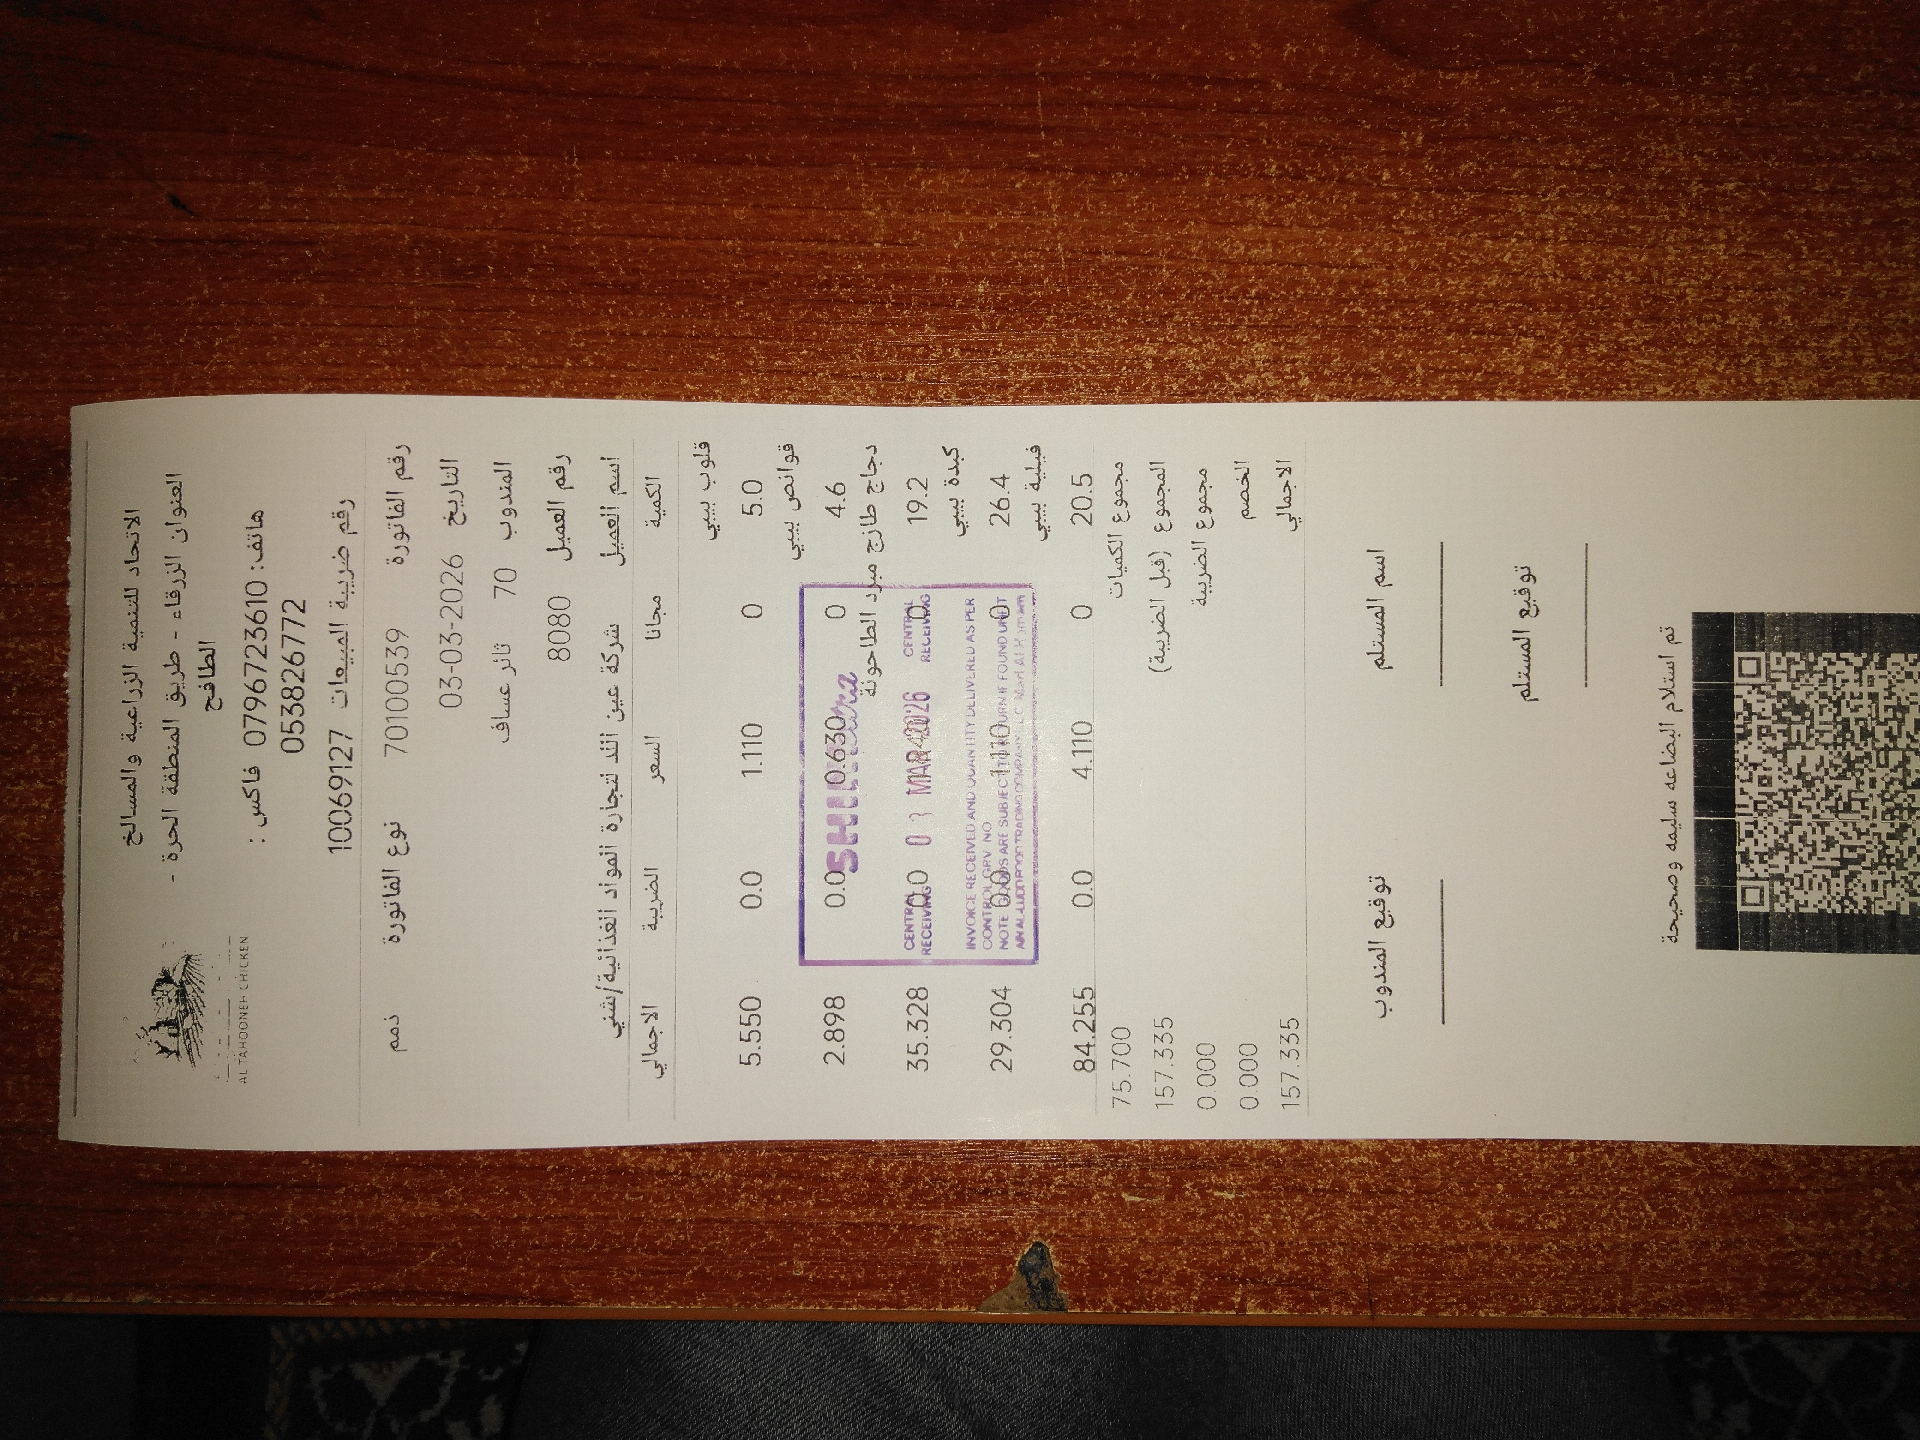 AL TAHOONEH CHICKEN
الاتحاد للتنمية الزراعية والمسالخ
العنوان الزرقاء - طريق المنطقة الحرة -
الطافح
هاتف: 0796723610 فاكس :
053826772
رقم ضريبة المبيعات 10069127
رقم الفاتورة 70100539 نوع الفاتورة ذمم
التاريخ 03-03-2026
المندوب 70 ثائر عساف
رقم العميل 8080
اسم العميل شركة عين اللد لتجارة المواد الغذائية/شني
الكمية مجانا السعر الضريبة الاجمالي
قلوب بيبي
5.0 0 1.110 0.0 5.550
قوانص بيبي
4.6 0 0.630 0.0 2.898
دجاج طازج مبرد الطاحونة
19.2 0 0.0 35.328
كبدة بيبي
26.4 0 1.110 0.0 29.304
فيلية بيبي
20.5 0 4.110 0.0 84.255
مجموع الكميات 75.700
المجموع (قبل الضريبة) 157.335
مجموع الضريبة 0.000
الخصم 0.000
الاجمالي 157.335
CENTRAL RECEIVING 03 MAR 2026 CENTRAL RECEIVING
INVOICE RECEIVED AND QUANTITY DELIVERED AS PER
CONTROL GRV NO
NOTE GOODS ARE SUBJECT TO RETURN IF FOUND UNFIT
اسم المستلم توقيع المندوب
توقيع المستلم
تم استلام البضاعه سليمه وصحيحة